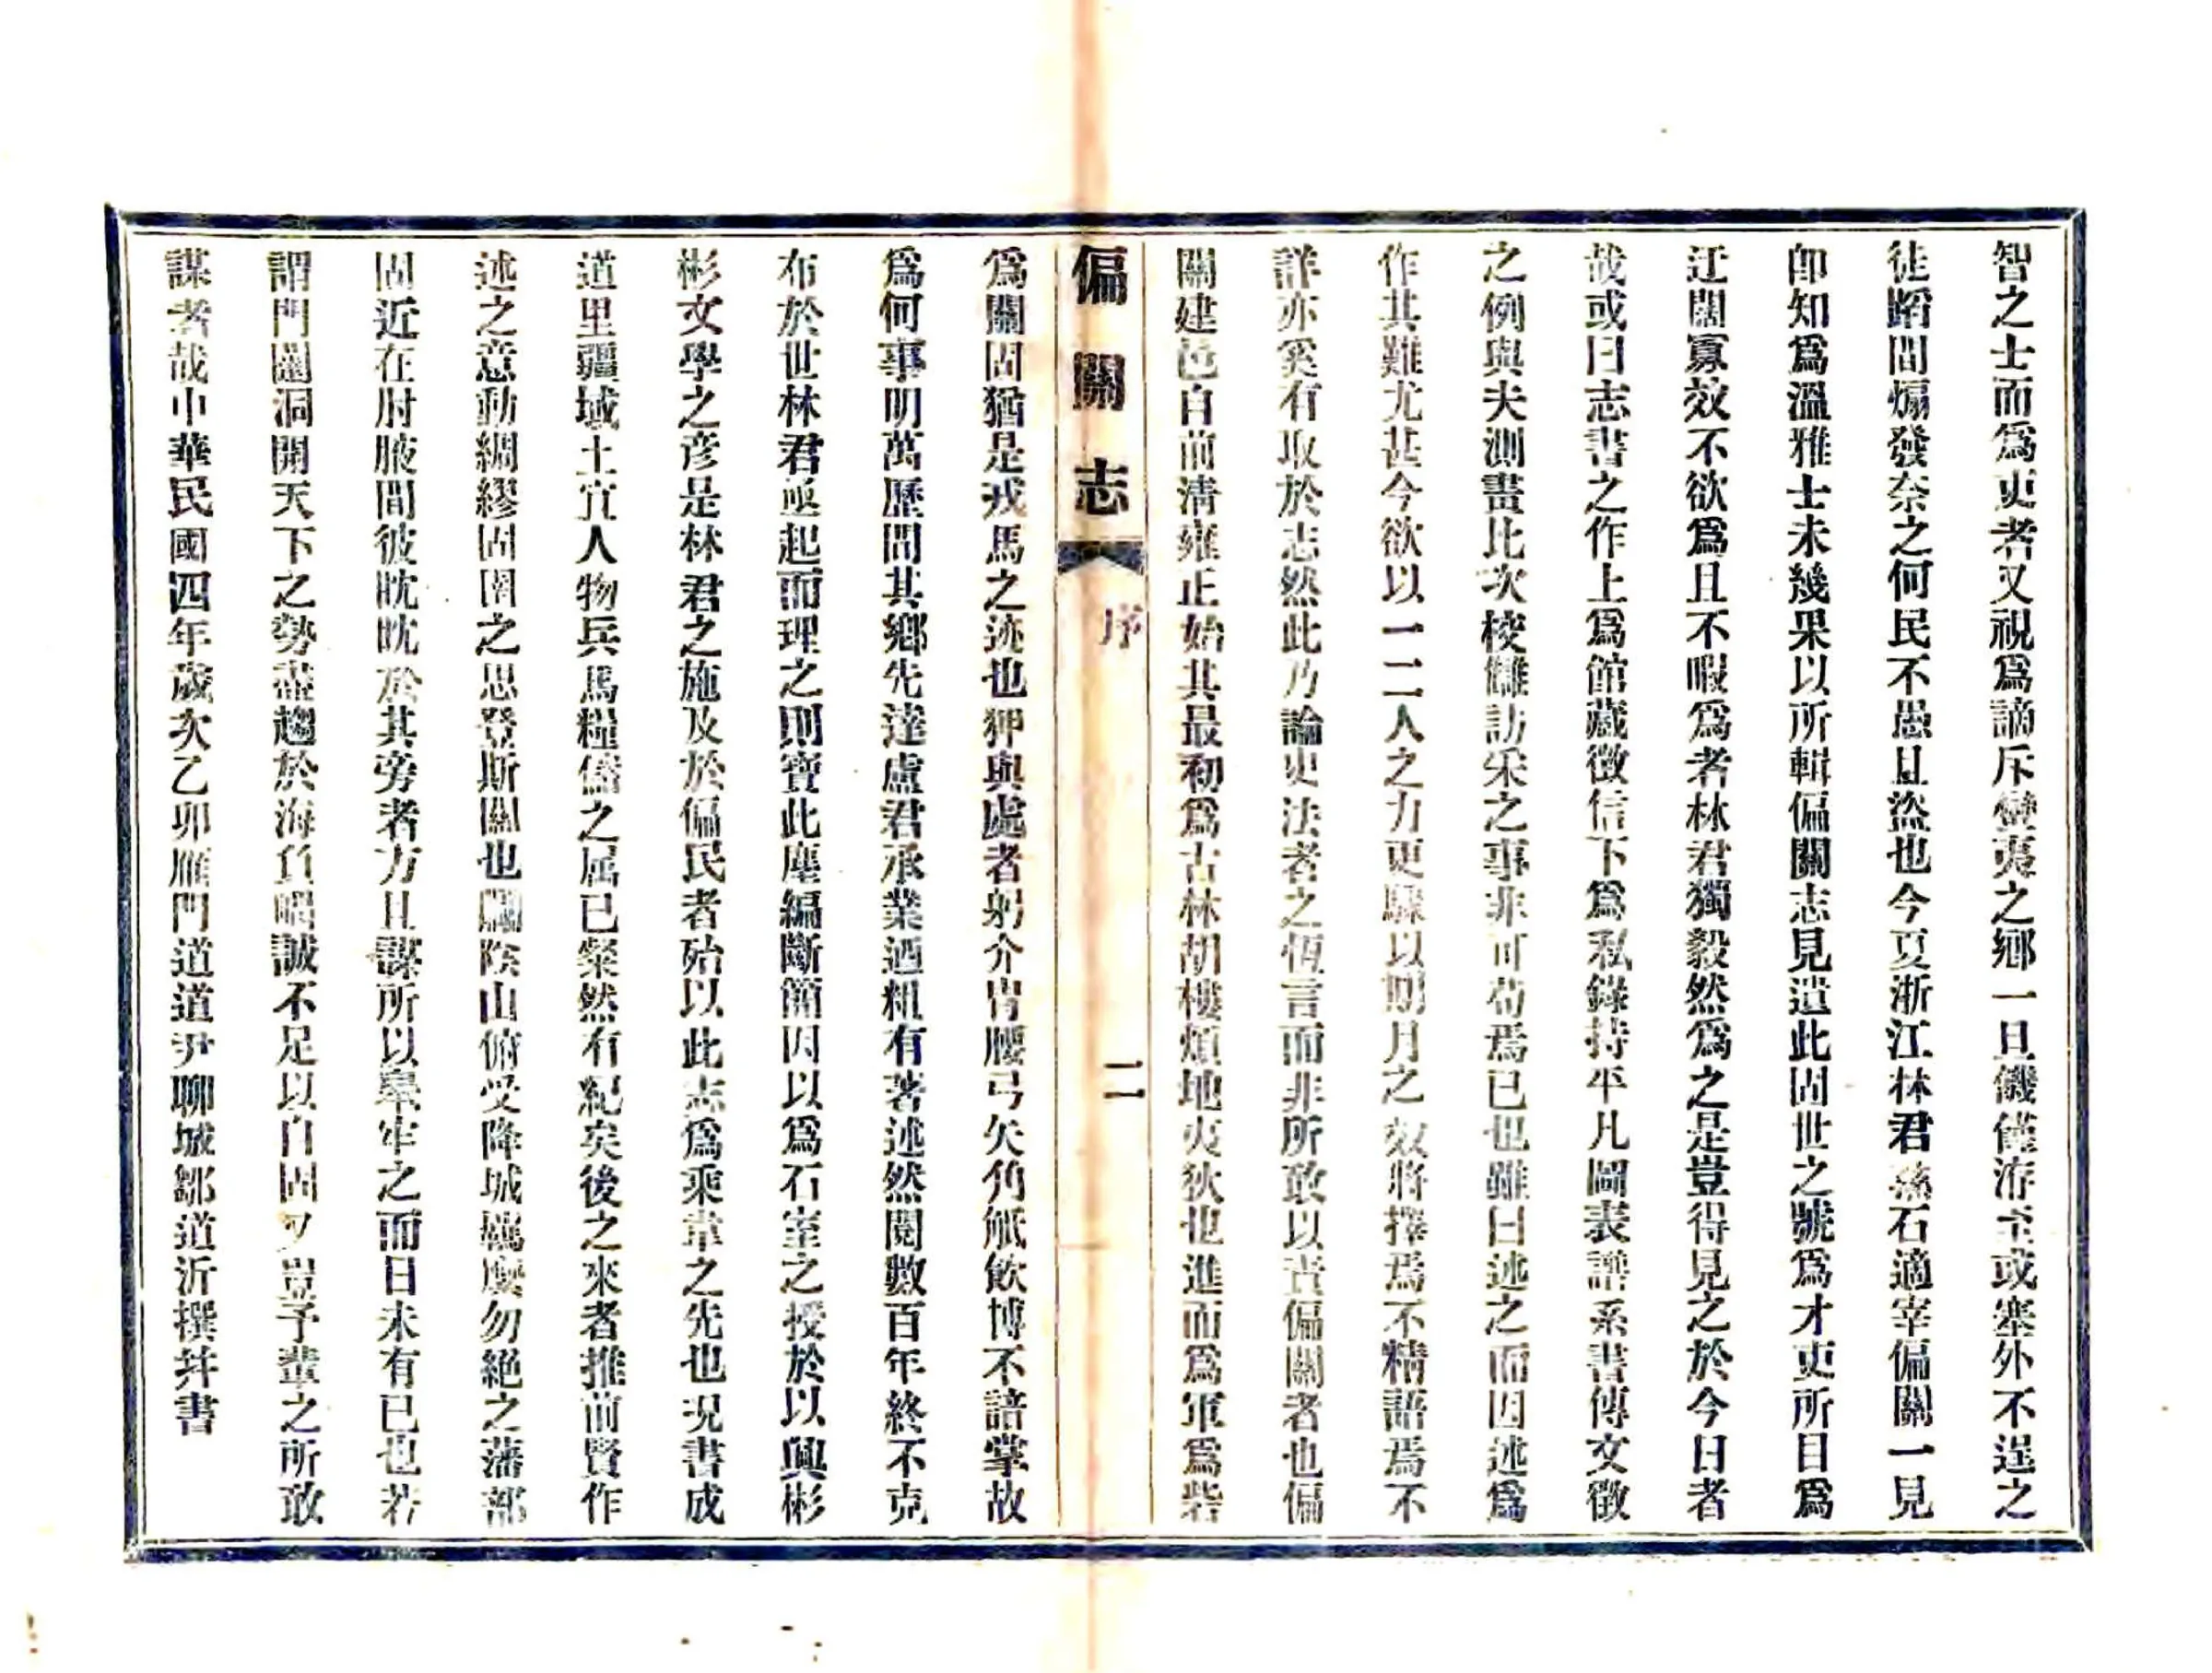 智之士而爲吏者又視爲謫斥蠻夷之鄉一旦饑僅洊至或塞外不逞之
徒蹈間煽發奈之何民不愚且盜也今夏浙江林君燕石適宰偏關一見
卽知爲溫雅士未幾果以所輯偏關志見遺此固世之號爲才吏所目爲
迂闊寡效不欲爲且不暇爲者林君獨毅然爲之是豈得見之於今日者
哉或曰志書之作上爲館藏徵信下爲私錄持平凡圖表譜系書傳文徵
之例與夫測畫比次校讎訪采之事非可苟焉已也雖曰述之而因述爲
作其難尤甚今欲以一二人之力更驟以期月之效將擇焉不精語焉不
詳亦奚有取於志然此乃論史法者之恆言而非所敢以責偏關者也偏
關建邑自前淸雍正始其最初爲古林胡樓煩地夷狄也進而爲軍爲砦
偏關志
序
二
爲關固猶是戎馬之迹也狎與處者躬介冑腰弓矢角觝飲博不諳掌故
爲何事明萬歷間其鄉先達盧君承業迺粗有著述然閱數百年終不克
布於世林君亟起而理之則寶此塵編斷簡因以爲石室之授於以興彬
彬文學之彥是林君之施及於偏民者殆以此志爲乘韋之先也況書成
道里疆域土宜人物兵馬糧儲之属已粲然有紀矣後之來者推前賢作
述之意動綢繆固圉之思登斯關也矙陰山俯受降城羈縻勿絕之藩部
固近在肘腋間彼眈眈於其旁者方且謀所以皋牢之而日未有已也若
謂門闥洞開天下之勢盡趨於海負嵎誠不足以自固又豈予輩之所敢
謀者哉中華民國四年歲次乙卯雁門道道尹聊城鄒道沂撰幷書